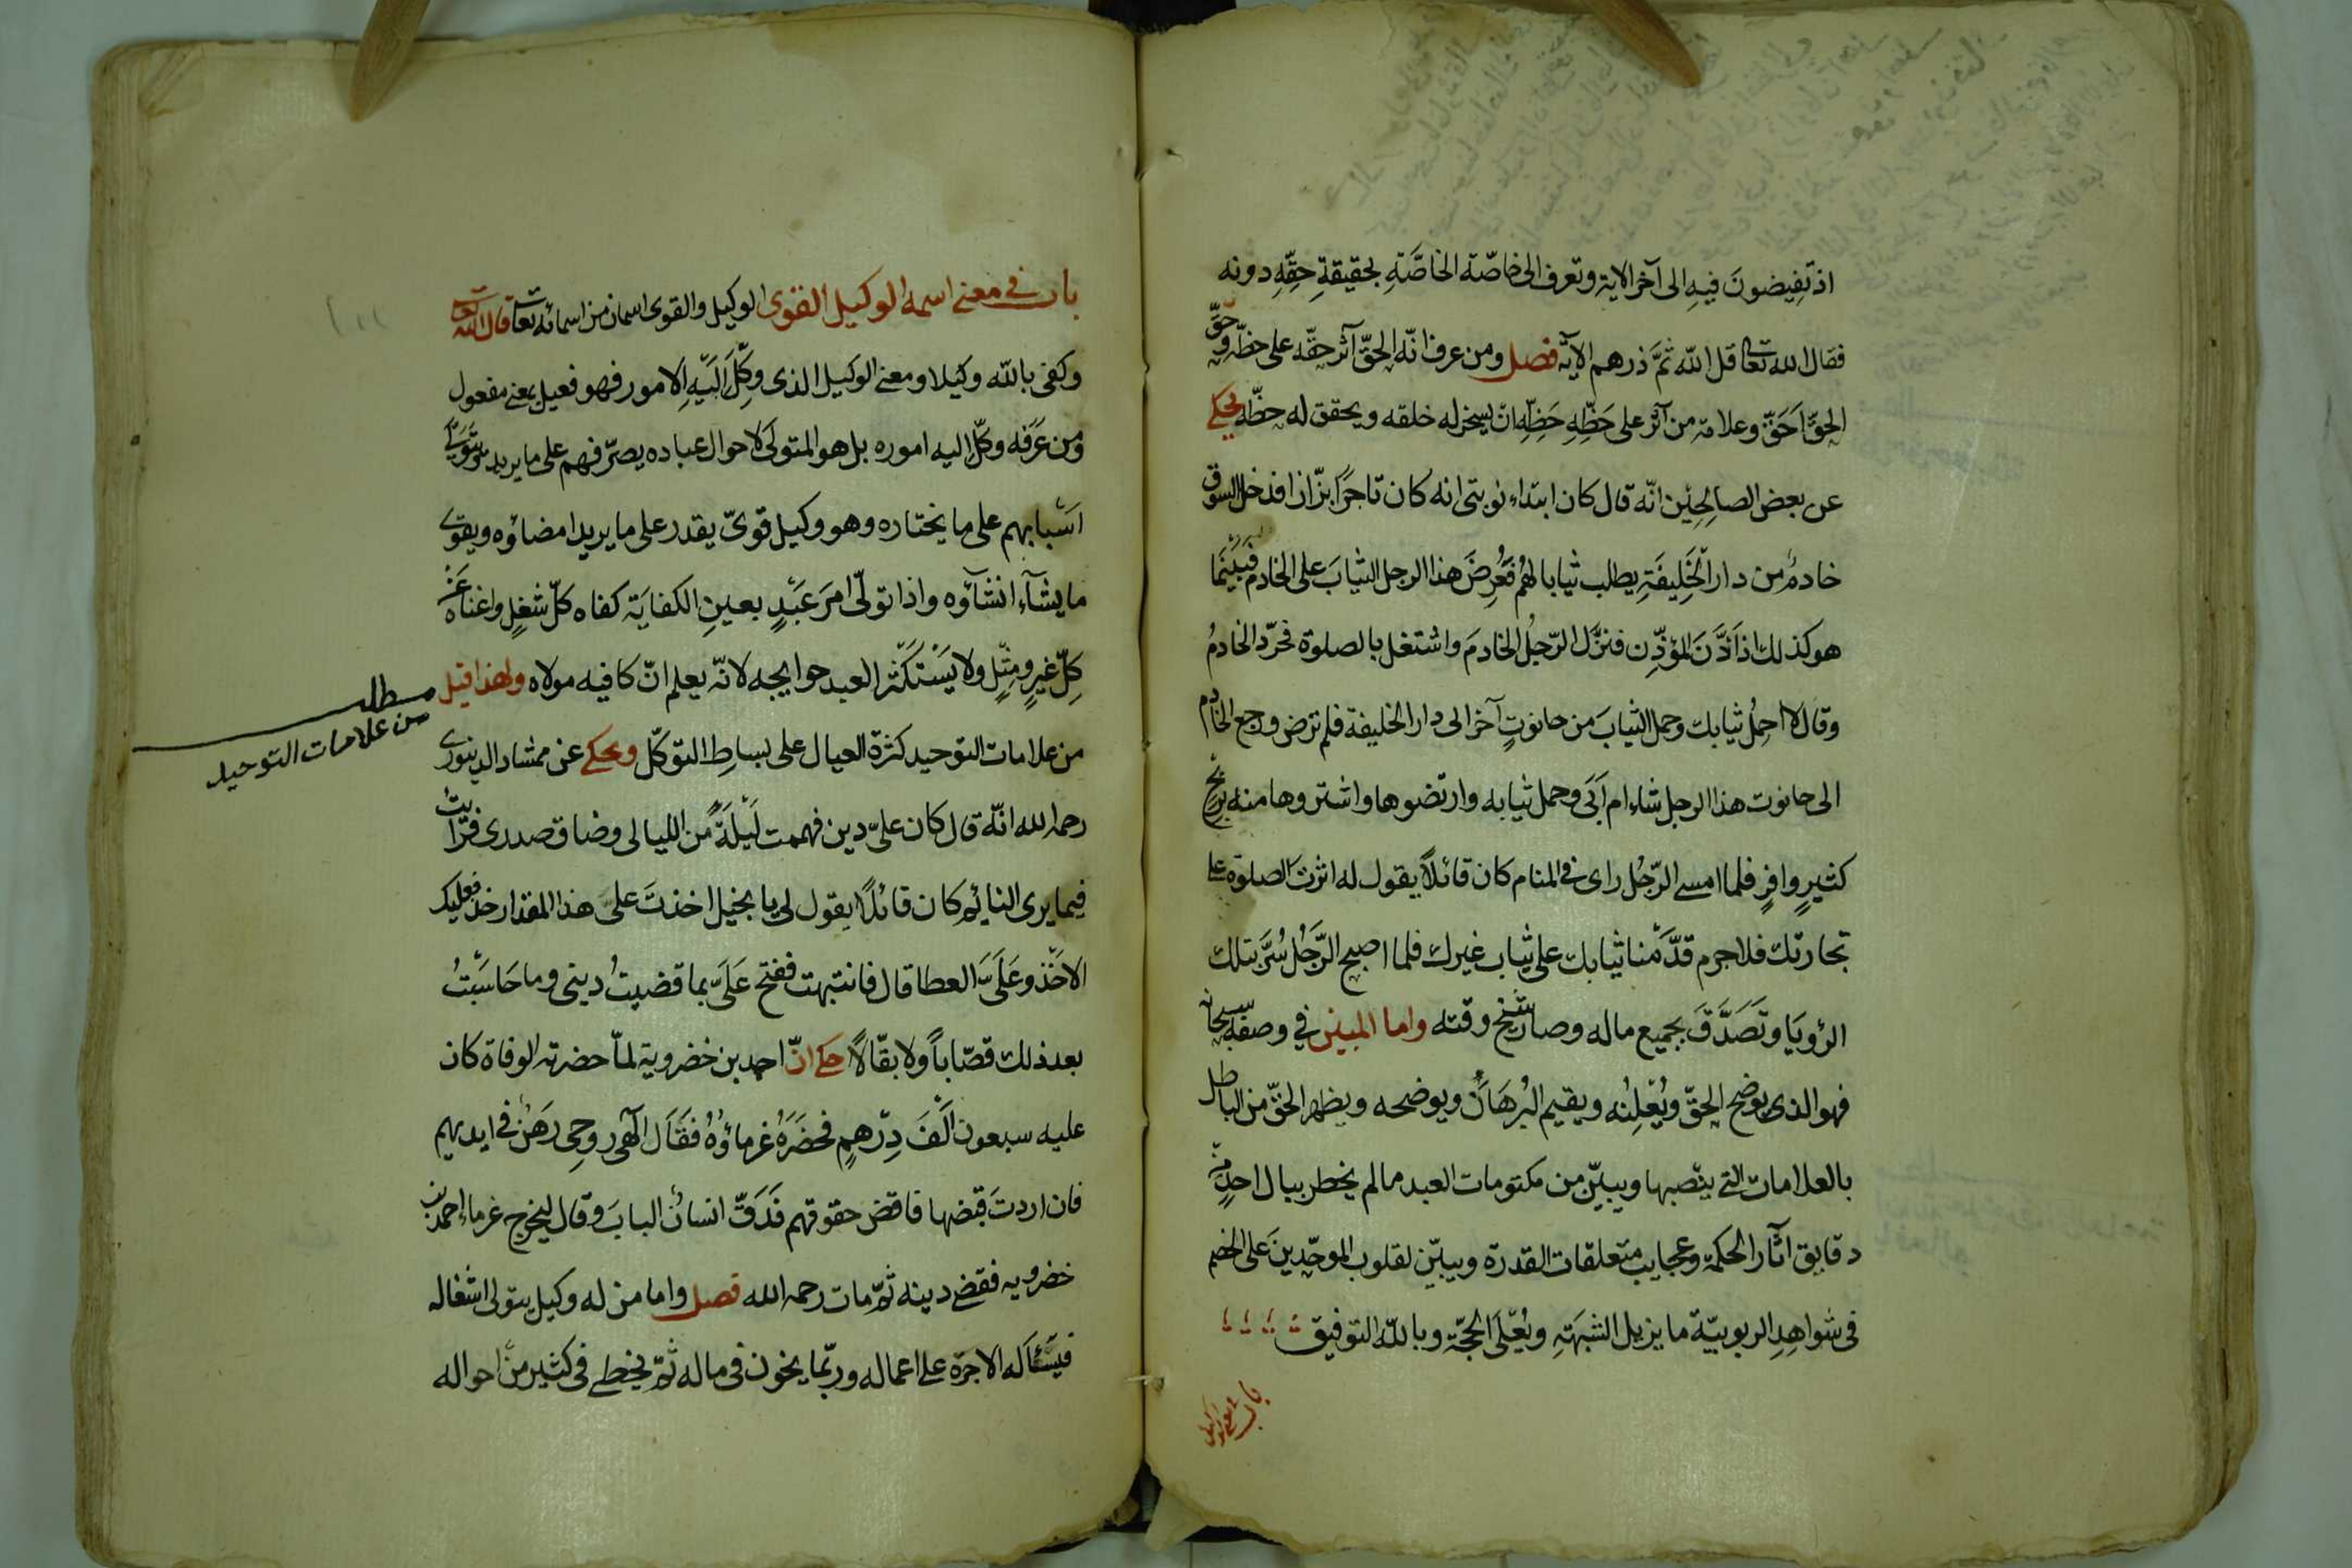 اذ تفيضون فيه الى آخر الاية وتعرف الى خاصّة الخاصّة بحقيقة حقّه دونه
فقال الله تعالى قل الله ثمّ ذرهم الآية فصل ومن عرف انّه الحقّ آثر حقّه على حظّه وحقّ
الحقّ احقّ وعلامة من آثر على حَظِّهِ حَظِّهِ ان يسخر له خلقه ويحقق له حظّه يحكى
عن بعض الصالحين انّه قال كان ابتداء نوبتى انه كان تاجراً بزّازا فدخل السوق
خادمٌ من دار الخليفة يطلب ثيابا لهم فعرض هذا الرجل الثياب على الخادم فبينما
هو كذلك اذ اذّن المؤذّن فنزل الرّجل الخادم واشتغل بالصلوة فحرّد الخادمُ
وقال لا احمل ثيابك وحمل الثياب من حانوتٍ آخر الى دار الخليفة فلم ترض ورجع الخادم
الى حانوت هذا الرجل شاء ام ابى وحمل ثيابه وارتضوها واشتروها منه بربح
كثيرٍ وافرٍ فلما امسى الرّجل راى فى المنام كان قائلاً يقول له اثرت الصلوة على
تجارتك فلا جرم قدّمنا ثيابك على ثياب غيرك فلما اصبح الرّجل سُرّ بتلك
الرؤيا وتصدّق بجميع ماله وصار شيخ وقته واما المبين في وصفه سبحانه
فهو الذى يوضح الحقّ ويُعْلِنُه ويقيم البرهان ويوضحه ويظهر الحقّ من الباطل
بالعلامات التى ينصبها ويبيّن من مكتومات العبد ما لم يخطر ببال احدٍ من
دقايق آثار الحكمة وعجايب متعلقات القدرة ويبيّن لقلوب الموحّدين على الخصم
فى شواهد الربوبيّة ما يزيل الشبهة ويُعلى الحجّة وبالله التوفيق
باب فى معنى اسمه الوكيل القوى الوكيل والقوى اسمان من اسمائه تعالى قال الله تعالى
وكفى بالله وكيلا ومعنى الوكيل الذى وكّل اليه الامور فهو فعيل بمعنى مفعول
ومن عرفه وكّل اليه اموره بل هو المتولى لاحوال عباده يصرّفهم على ما يريد
اسبابهم على ما يختاره وهو وكيل قوىّ يقدر على ما يريد امضاؤه ويقوى
ما يشآء انشآؤه واذا تولّى امر عبدٍ بعين الكفاية كفاه كلّ شغلٍ واغناه عن
كلّ غيرٍ ومثلٍ ولا يستكثر العبد حوايجه لانّه يعلم انّ كافيه مولاه ولهذا قيل
من علامات التوحيد كثرة العيال على بساط التوكّل ويحكى عن ممشاد الدينورى
رحمه الله انّه قال كان علىّ دين فهممت ليلةً من الليالى وضاق صدرى فرايت
فيما يرى النائم كان قائلاً يقول لى يا بخيل اخذت على هذا المقدار خذ فعليك
الاخذ وعلىّ العطا قال فانتبهت ففتح علىّ بما قضيتُ دينى وما حاسبتُ
بعد ذلك قصّاباً ولا بقّالاً حكى انّ احمد بن خضروية لمّا حضرته الوفاة كان
عليه سبعون الف درهم فحضره غرماؤه فقال الٓهى روحى رهن فى ايديهم
فان اردت قبضها فاقض حقوقهم فدقّ انسان الباب وقال ليخرج غرماء احمد بن
خضرويه فقضى دينه ثمّ مات رحمه الله فصل واما من له وكيل يتولى اشغاله
فيسأله الاجرة على اعماله وربّما يخون فى ماله ثمّ يخطى فى كثير من احواله
مطلب
من علامات التوحيد